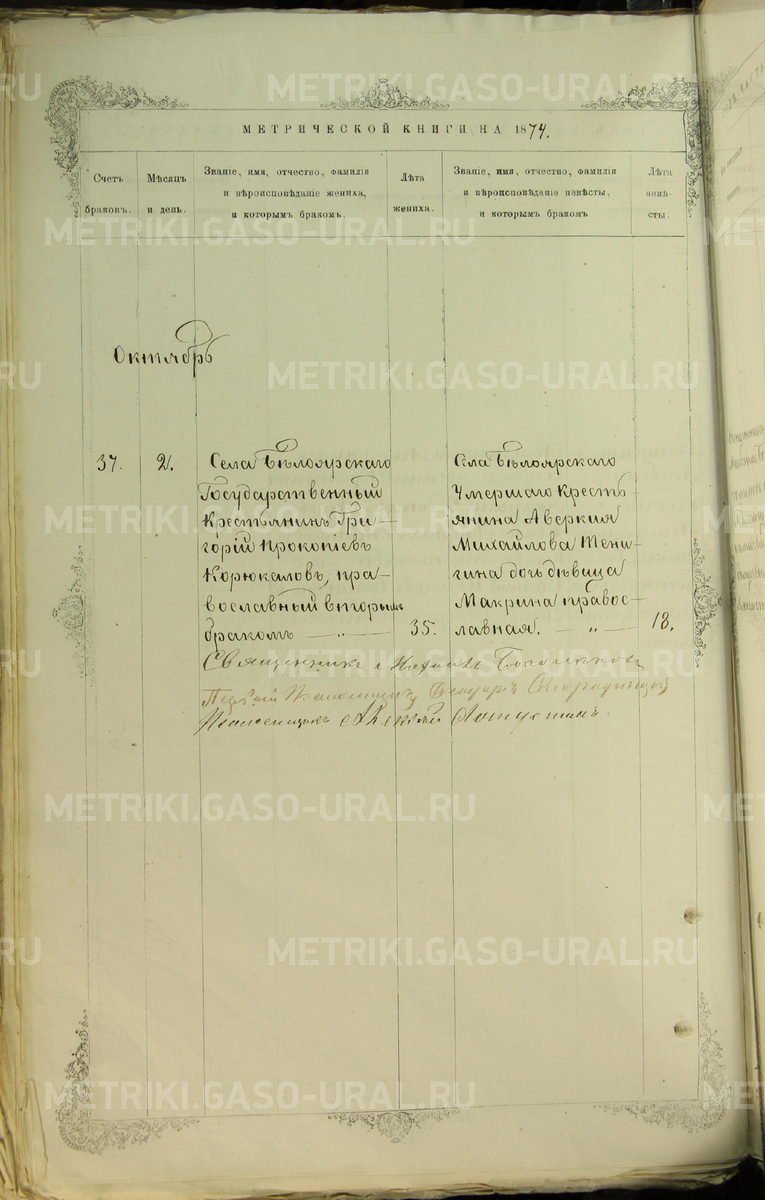 МЕТРИЧЕСКОЙ КНИГИ НА 1874.
Счетъ браковъ.
Мѣсяцъ и день.
Званіе, имя, отчество, фамилія
и вѣроисповѣданіе жениха,
и которымъ бракомъ.
Лѣта жениха.
Званіе, имя, отчество, фамилія
и вѣроисповѣданіе невѣсты,
и которымъ бракомъ
Лѣта невѣсты.
Октябрь
37.
2.
Села Бѣлоярскаго
Государственный
Крестьянинъ Гри-
горій Прокопіевъ
Корюкаловъ, пра-
вославный вторымъ
бракомъ — „ —
35.
Села Бѣлоярскаго
Умершаго Кресть
янина Аверкия
Михайлова
дочь дѣвица
Макрина правос-
лавная. — „ —
18.
Священникъ
METRIKI.GASO-URAL.RU